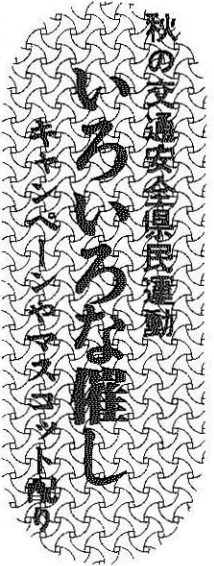 秋の交通安全県民運動
いろいろな催し
キャンペーンやマスコット配り